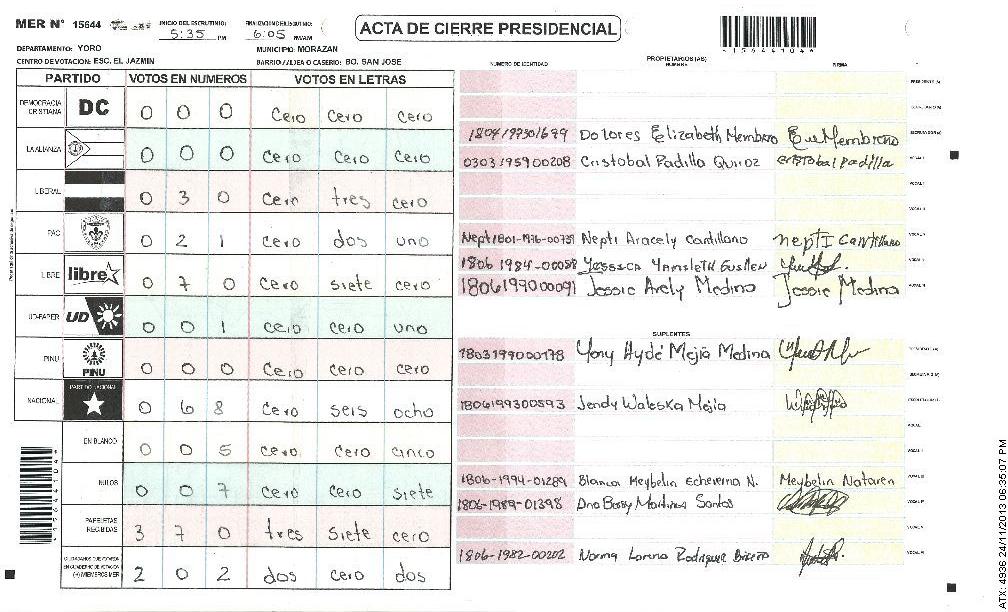 MER N° 15644
INICIO DEL ESCRUTINIO: 5:35 PM
FINALIZACION DEL ESCRUTINIO: 6:05
ACTA DE CIERRE PRESIDENCIAL
DEPARTAMENTO: YORO
MUNICIPIO: MORAZAN
CENTRO DE VOTACION: ESC. EL JAZMIN
BARRIO / ALDEA O CASERIO: BO. SAN JOSE
PARTIDO VOTOS EN NUMEROS VOTOS EN LETRAS
DEMOCRACIA CRISTIANA DC 0 0 0 Cero Cero Cero
LA ALIANZA 0 0 0 Cero Cero Cero
LIBERAL 0 3 0 Cero tres cero
PAC 0 2 1 Cero dos uno
LIBRE libre 0 7 0 Cero siete cero
UD-FAPER UD 0 0 1 Cero cero uno
PINU PINU 0 0 0 Cero cero Cero
NACIONAL PARTIDO NACIONAL 0 6 8 Cero seis ocho
EN BLANCO 0 0 5 cero Cero cinco
NULOS 0 0 7 Cero Cero siete
PAPELETAS RECIBIDAS 3 7 0 tres siete cero
CIUDADANOS QUE VOTARON EN CUADERNO DE VOTACION (+) MIEMBROS MER 2 0 2 dos cero dos
NUMERO DE IDENTIDAD PROPIETARIOS (AS) NOMBRE FIRMA
Dolores Elizabeth Membreño
0303195900208 Cristobal Padilla Quiroz cristobal padilla
Nepti Aracely Cantillano nepti cantillano
1806 1984-00058 Yessica
1806199000091 Jessie Arely Medina Jessie Medina
SUPLENTES
1803199000178 Yony Aydé Mejía Medina
1806199300593 Jendy Waleska Mejia
1806-1994-01289 Blanca Meybelin Echeverria N. Meybelin Nataren
1806-1989-01398 Martinez Santos
1806-1982-00202 Norma Lorena Rodriguez
ATX: 4936 24/11/2013 06:35:07 PM